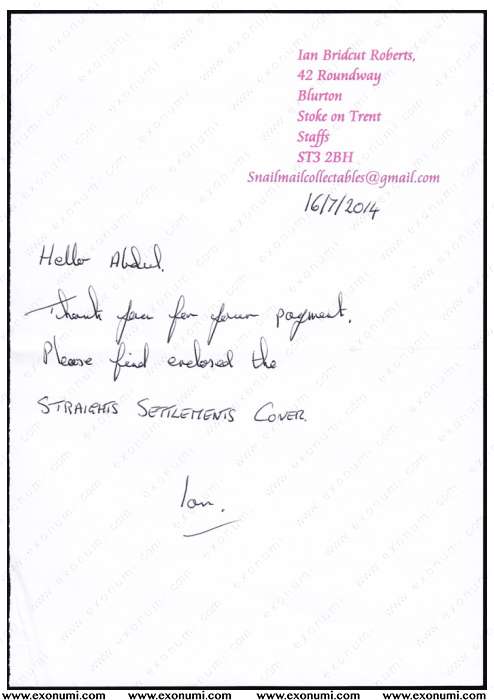 Ian Bridcut Roberts,
42 Roundway
Blurton
Stoke on Trent
Staffs
ST3 2BH
Snailmailcollectables@gmail.com
16/7/2014
Hello Abdul.
Thank you for your payment.
Please find enclosed the
STRAIGHTS SETTLEMENTS COVER.
Ian.
www.exonumi.com www.exonumi.com www.exonumi.com www.exonumi.com